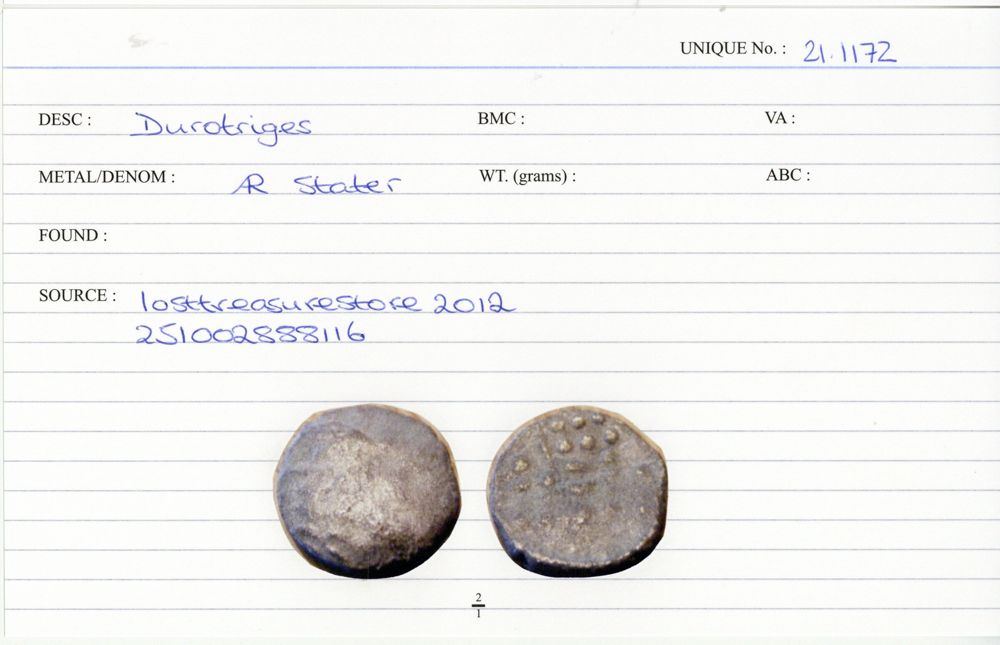 UNIQUE No. : 21.1172
DESC : Durotriges BMC : VA :
METAL/DENOM : AR Stater WT. (grams) : ABC :
FOUND :
SOURCE : losttreasurestore 2012
251002888116
2
1